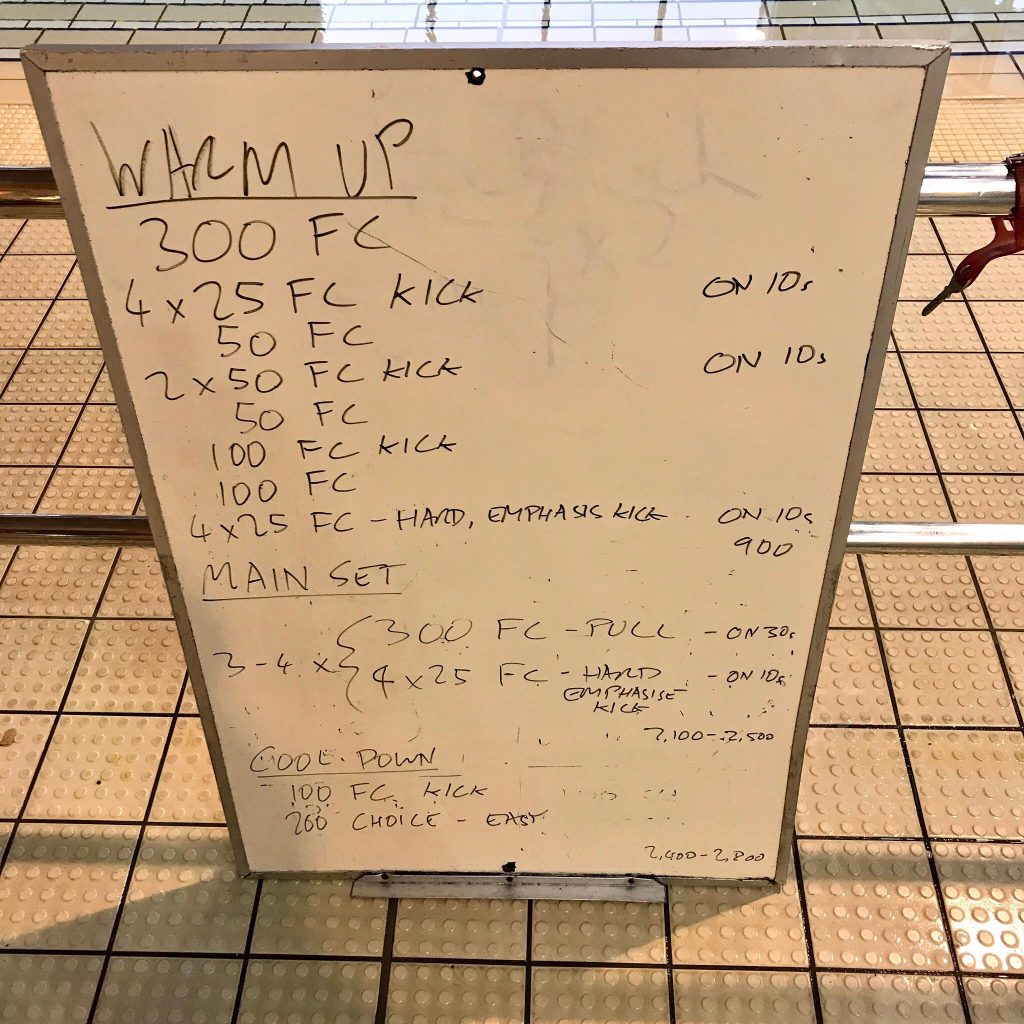 WARM UP
300 FC
4 x 25 FC KICK ON 10s
50 FC
2 x 50 FC KICK ON 10s
50 FC
100 FC KICK
100 FC
4 x 25 FC - HARD, EMPHASIS KICK ON 10s
900
MAIN SET
3-4 x { 300 FC - PULL - ON 30s
4 x 25 FC - HARD - ON 10s
EMPHASISE
KICK
2,100-2,500
COOL DOWN
100 FC KICK
200 CHOICE - EASY
2,400-2,800